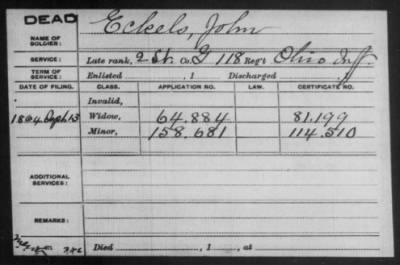 DEAD
NAME OF SOLDIER: Eckels, John
SERVICE: Late rank, 2 Lt. Co. G 118 Reg't Ohio Inf.
TERM OF SERVICE: Enlisted , 1 Discharged , 1
DATE OF FILING. CLASS. APPLICATION NO. LAW. CERTIFICATE NO.
Invalid,
1864 Sept 13 Widow, 64.884 81.199
Minor, 158.681 114.510
ADDITIONAL SERVICES:
REMARKS:
Died , 1 , at